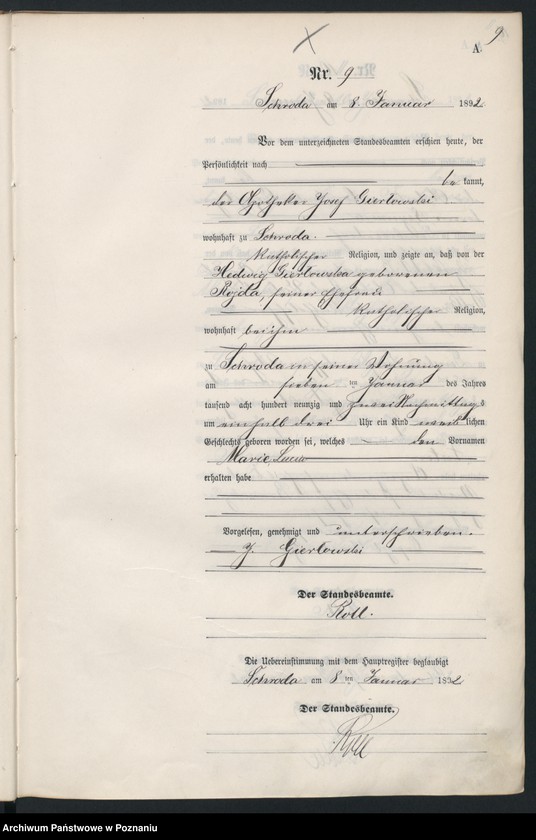 9
A
Nr. 9
Schroda am 8 Januar 1892
Vor dem unterzeichneten Standesbeamten erschien heute, der
Persönlichkeit nach
be kannt,
der Apotheker Josef Gierlowski
wohnhaft zu Schroda.
katholischer Religion, und zeigte an, daß von der
Hedwig Gierlowska geborenen
Rojda, seiner Ehefrau
katholischer Religion,
wohnhaft bei ihm
zu Schroda in seiner Wohnung
am sieben ten Januar des Jahres
tausend acht hundert neunzig und zwei Nachmittags
um ein halb drei Uhr ein Kind weib lichen
Geschlechts geboren worden sei, welches den Vornamen
Marie
erhalten habe
Vorgelesen, genehmigt und unterschrieben.
J. Gierlowski
Der Standesbeamte.
Die Uebereinstimmung mit dem Hauptregister beglaubigt
Schroda am 8 ten Januar 1892
Der Standesbeamte.
Archiwum Państwowe w Poznaniu